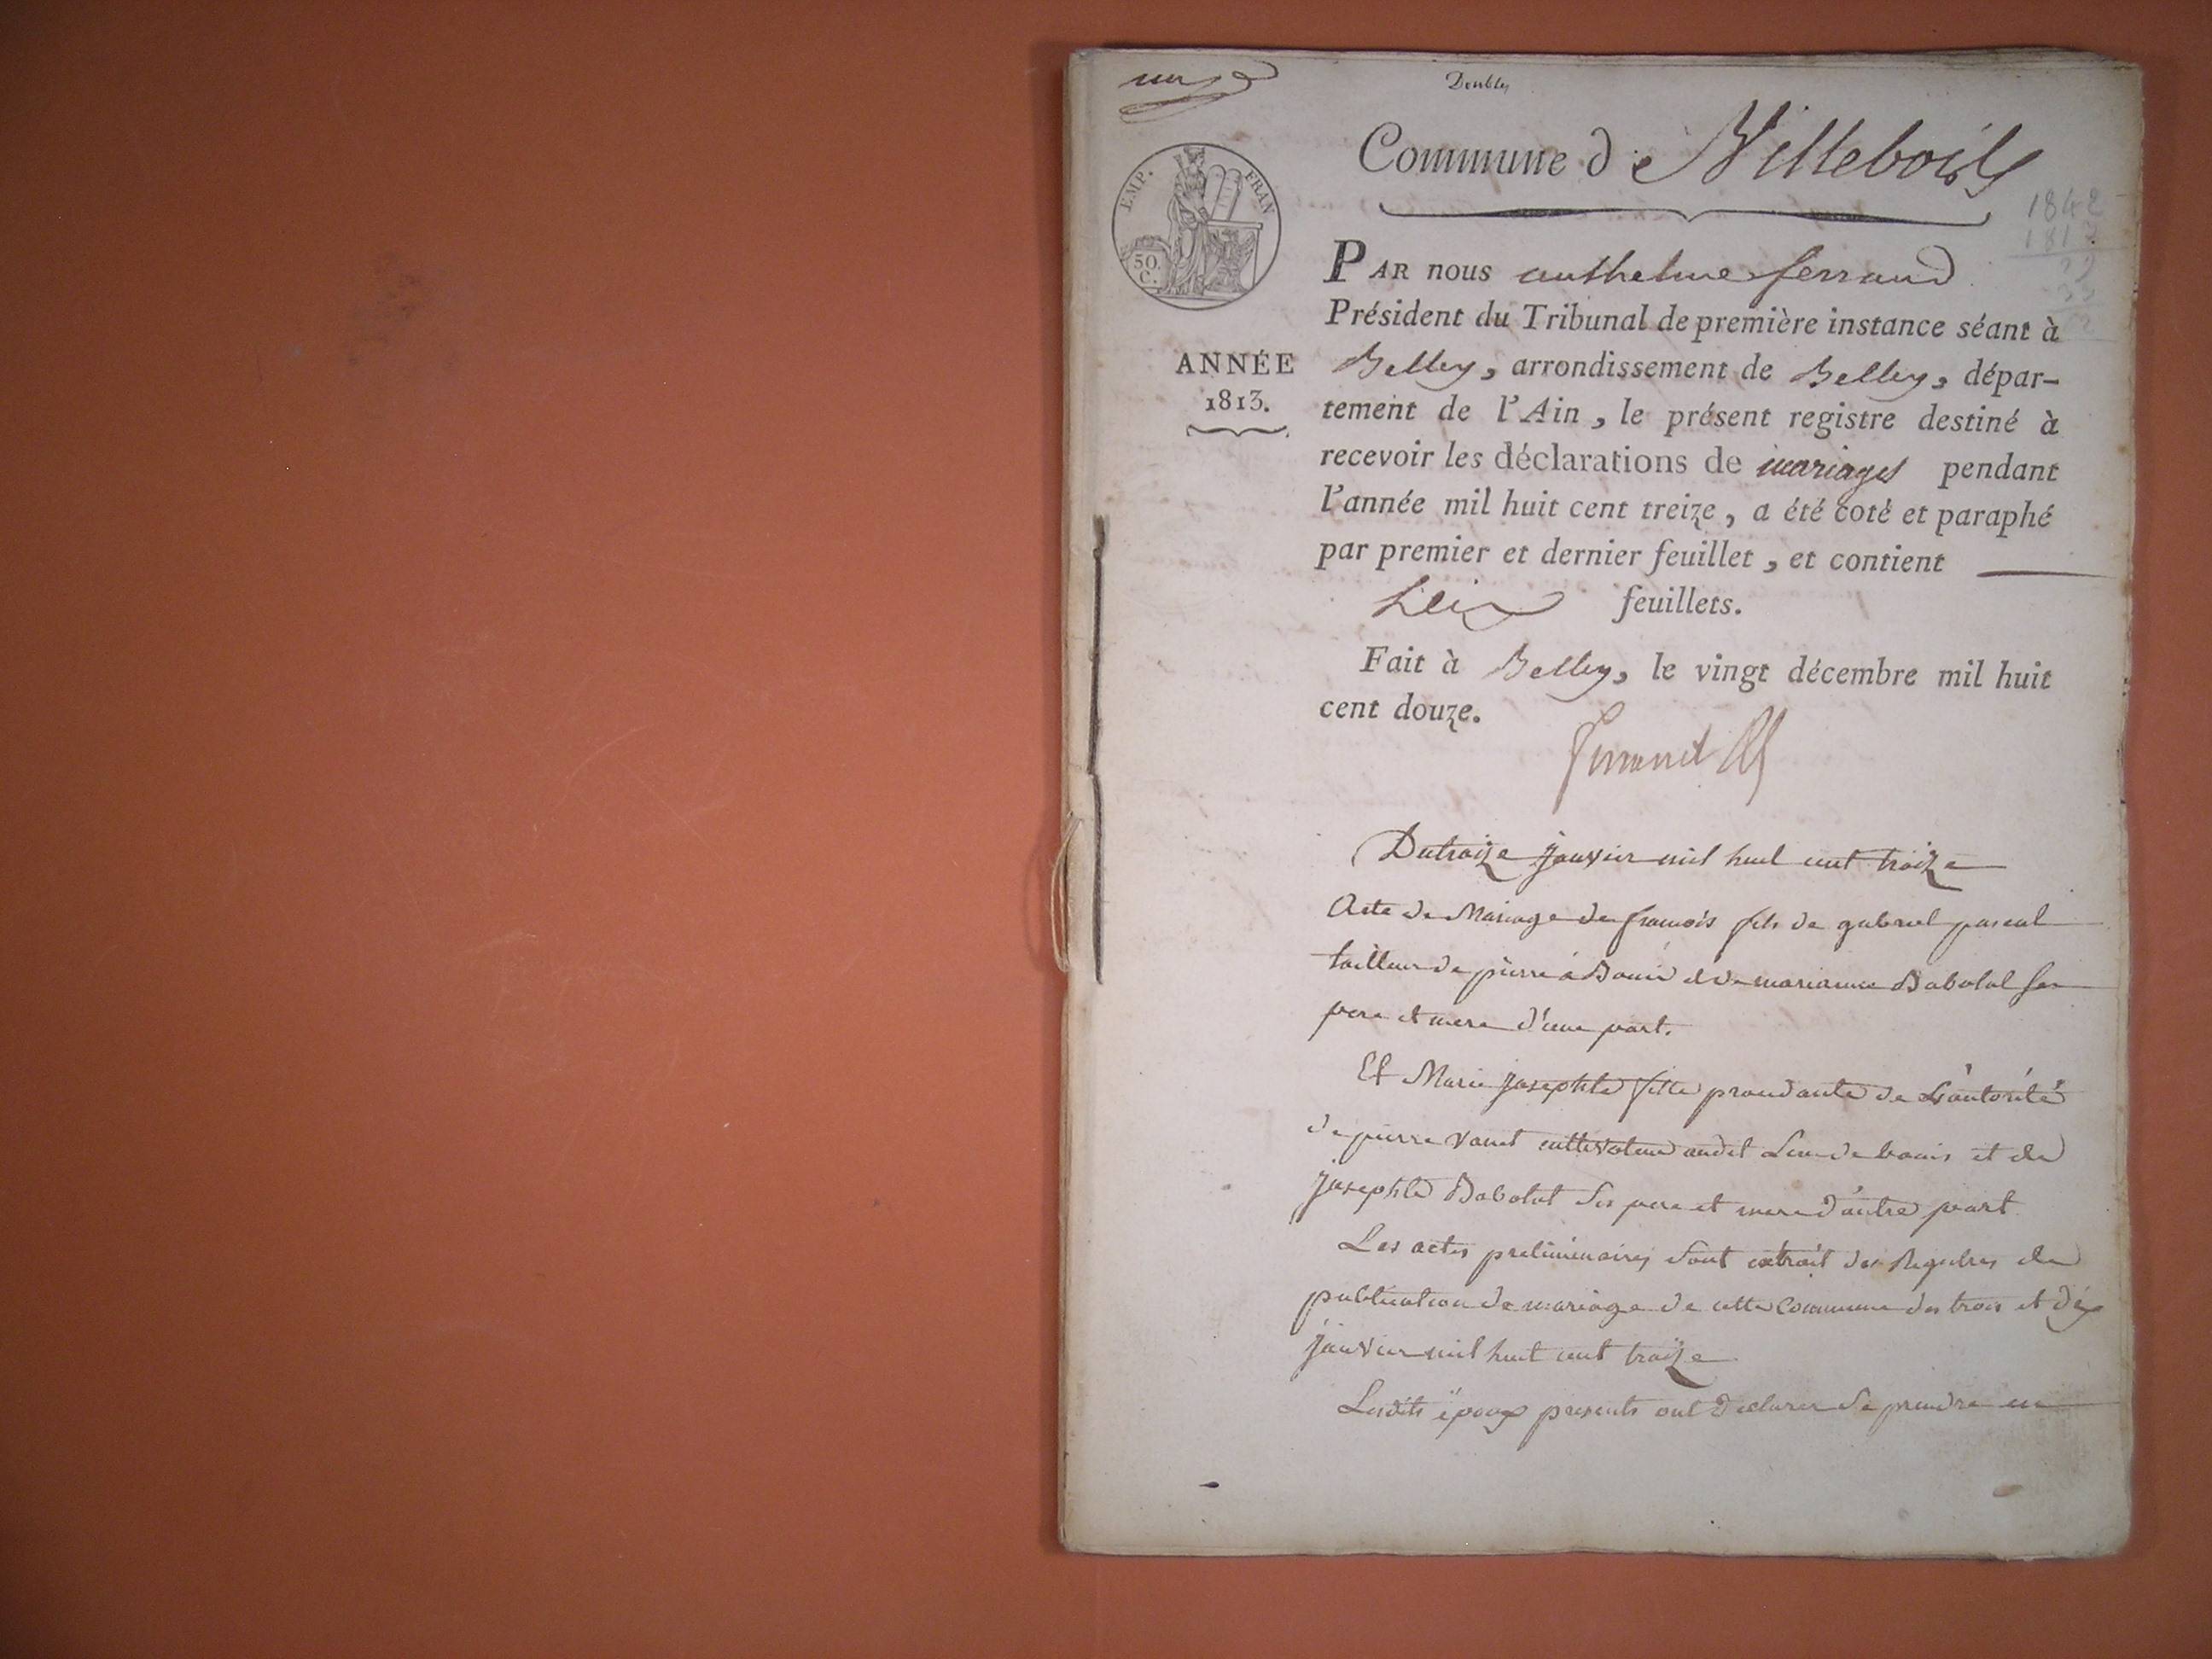 un
Double
Commune de Villebois
EMP. FRAN
50.
C.
1842
1813
PAR nous anthelme ferrand
Président du Tribunal de première instance séant à
ANNÉE
1813.
Belley, arrondissement de Belley, dépar-
tement de l'Ain, le présent registre destiné à
recevoir les déclarations de mariages pendant
l'année mil huit cent treize, a été coté et paraphé
par premier et dernier feuillet, et contient
feuillets.
Fait à Belley, le vingt décembre mil huit
cent douze.
Ferrand
Du traize janvier mil huit cent traize
Acte de Mariage de françois fils de gabriel pascal
tailleur de pierre à Bouis et de marianne Babolat ses
pere et mere d'une part.
Et Marie Josephte fille de L'autorité
de pierre vanet cultivateur audit Lieu de bouis et de
Josephte Babolat Ses pere et mere d'autre part
Les actes preliminaires Sont extrait des Registres de
publication de mariage de cette Commune des trois et dix
janvier mil huit cent traize
Lesdits époux presents ont declarer Se prendre en